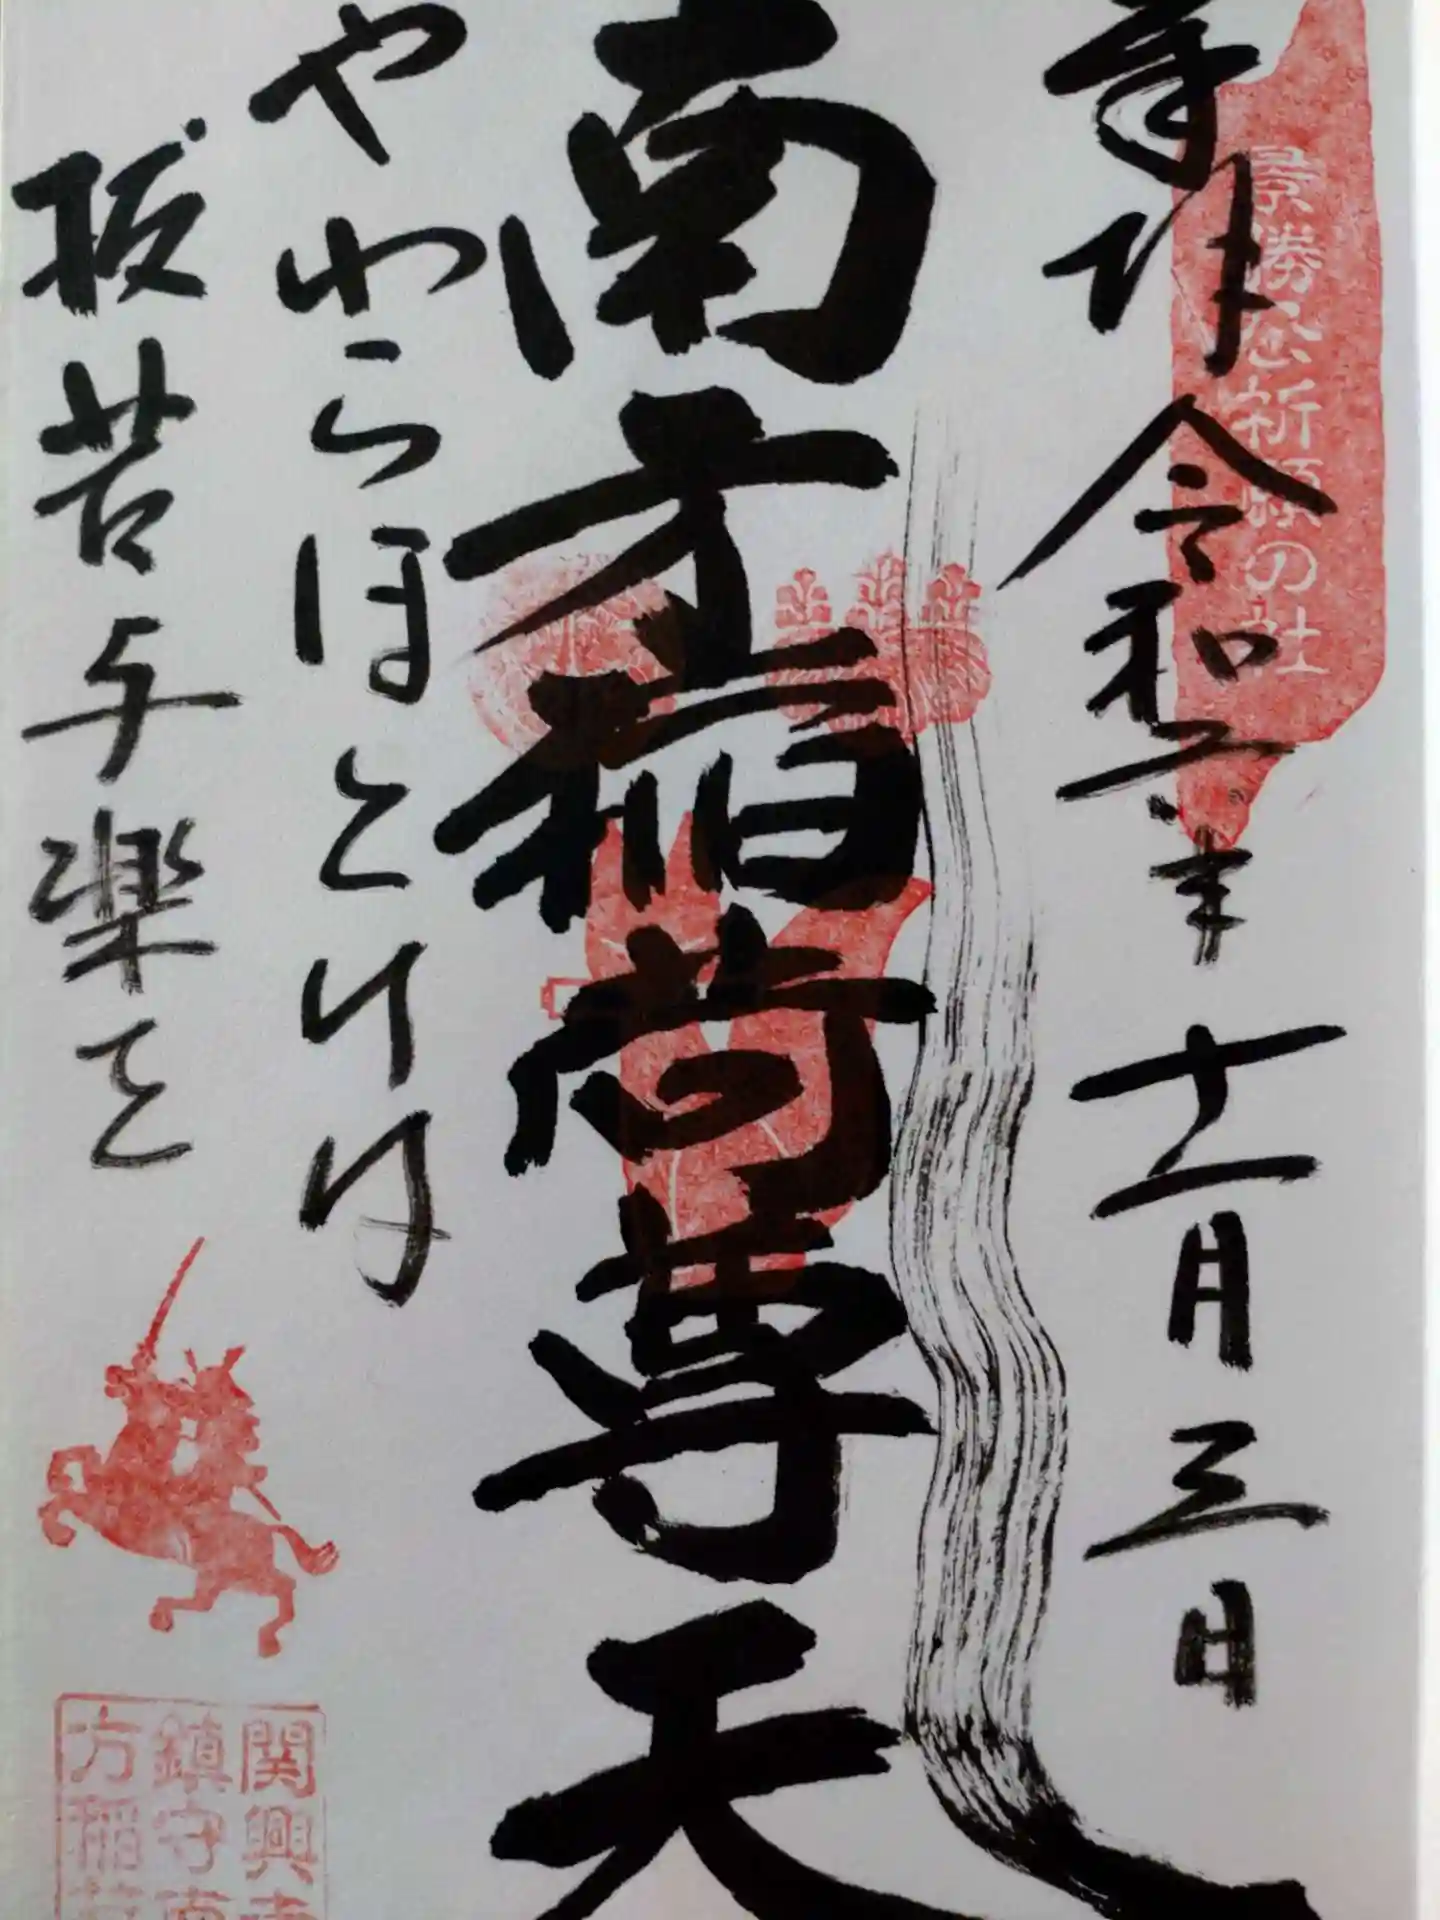 奉拝 令和二年 十二月三日
景勝公祈願の社
南方稲荷尊天
やわらほとけ
抜苦与楽
関興寺
鎮守南
方稲荷